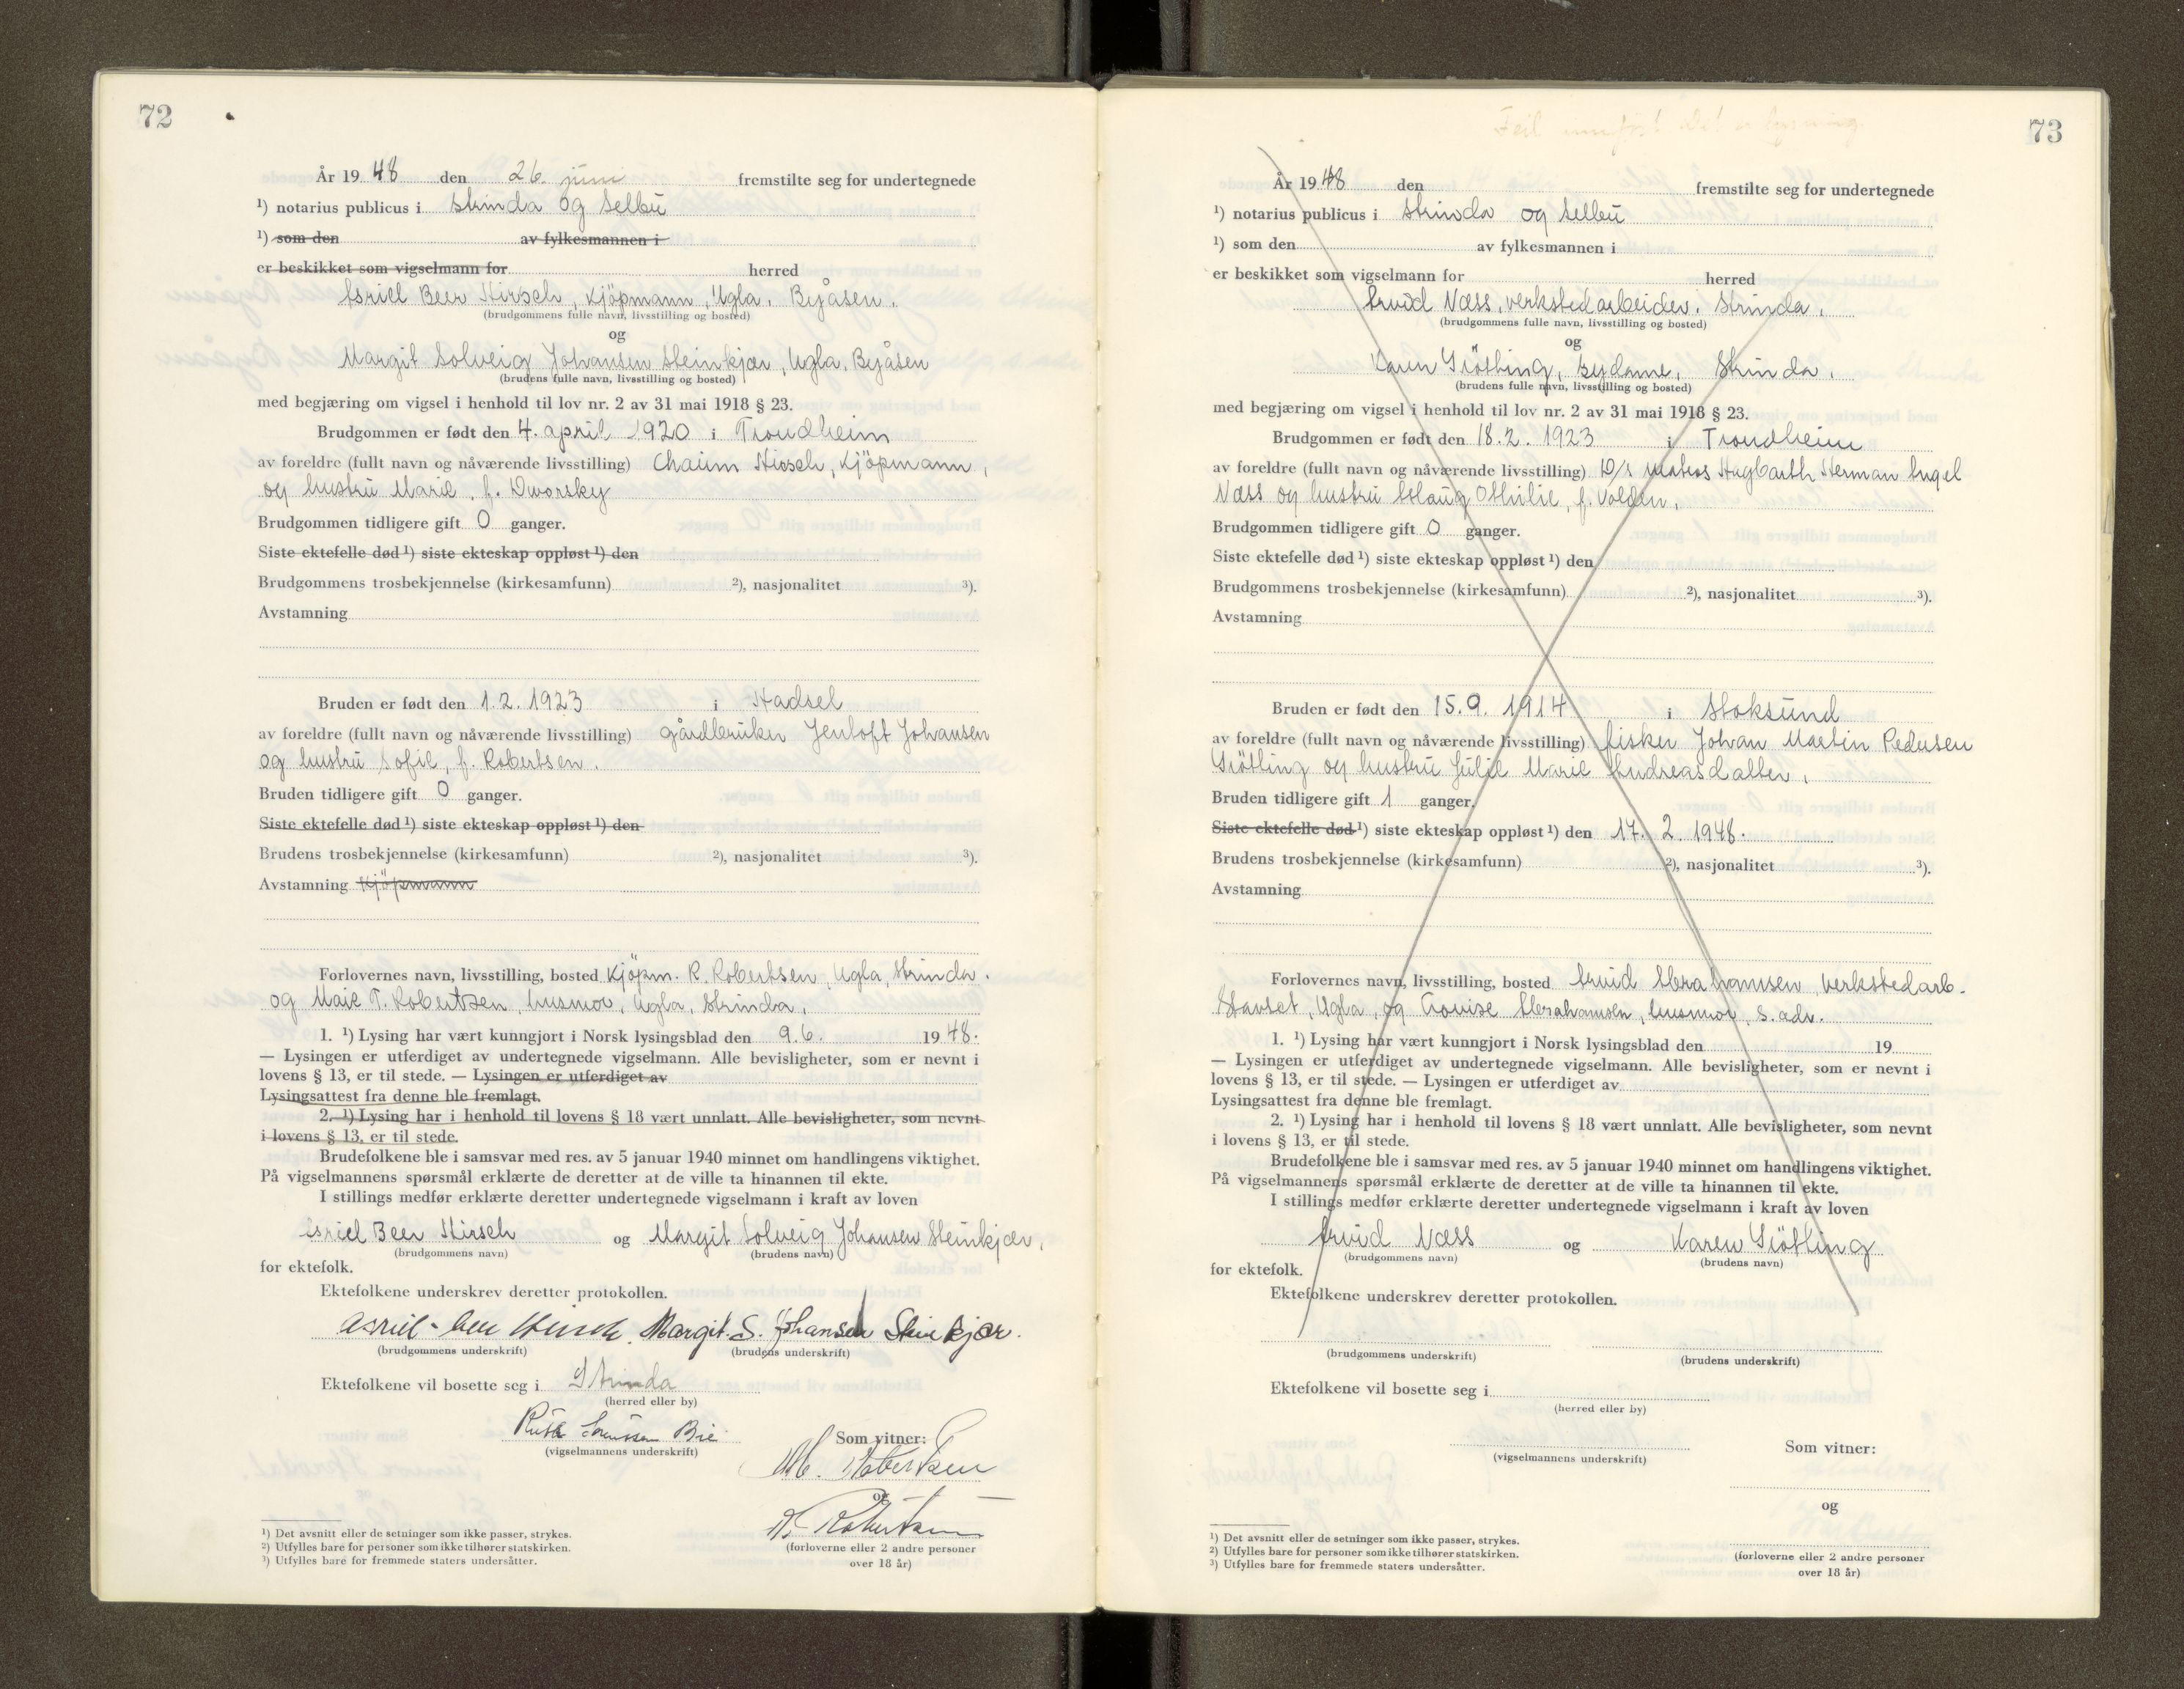 72
År 1948 den 26. juni fremstilte seg for undertegnede
¹) notarius publicus i Strinda og Selbu
¹) som den av fylkesmannen i
er beskikket som vigselmann for herred
Asriel Beer Hirsch, kjöpmann, Ugla, Byåsen.
(brudgommens fulle navn, livsstilling og bosted)
og
Margit Solveig Johansen Steinkjær, Ugla, Byåsen
(brudens fulle navn, livsstilling og bosted)
med begjæring om vigsel i henhold til lov nr. 2 av 31 mai 1918 § 23.
Brudgommen er født den 4. april 1920 i Trondheim
av foreldre (fullt navn og nåværende livsstilling) Chaim Hirsch, kjöpmann,
og hustru Marie, f. Dworsky
Brudgommen tidligere gift 0 ganger.
Siste ektefelle død ¹) siste ekteskap oppløst ¹) den
Brudgommens trosbekjennelse (kirkesamfunn) ²), nasjonalitet ³).
Avstamning
Bruden er født den 1.2.1923 i Hadsel
av foreldre (fullt navn og nåværende livsstilling) gårdbruker Jentoft Johansen
og hustru Sofie, f. Robertsen.
Bruden tidligere gift 0 ganger.
Siste ektefelle død ¹) siste ekteskap oppløst ¹) den
Brudens trosbekjennelse (kirkesamfunn) ²), nasjonalitet ³).
Avstamning kjöpmann
Forlovernes navn, livsstilling, bosted kjöpm. R. Robertsen, Ugla, Strinda.
og Maie T. Robertsen, husmor, Ugla, Strinda,
1. ¹) Lysing har vært kunngjort i Norsk lysingsblad den 9.6. 1948.
— Lysingen er utferdiget av undertegnede vigselmann. Alle bevisligheter, som er nevnt i
lovens § 13, er til stede. — Lysingen er utferdiget av
Lysingsattest fra denne ble fremlagt.
2. ¹) Lysing har i henhold til lovens § 18 vært unnlatt. Alle bevisligheter, som nevnt
i lovens § 13, er til stede.
Brudefolkene ble i samsvar med res. av 5 januar 1940 minnet om handlingens viktighet.
På vigselmannens spørsmål erklærte de deretter at de ville ta hinannen til ekte.
I stillings medfør erklærte deretter undertegnede vigselmann i kraft av loven
Asriel Beer Hirsch og Margit Solveig Johansen Steinkjær,
(brudgommens navn) (brudens navn)
for ektefolk.
Ektefolkene underskrev deretter protokollen.
Asriel-Beer Hirsch. Margit. S. Johansen Steinkjær.
(brudgommens underskrift) (brudens underskrift)
Ektefolkene vil bosette seg i Strinda
(herred eller by)
Bie
(vigselmannens underskrift)
Som vitner:
M. Robertsen
og
R. Robertsen
(forloverne eller 2 andre personer
over 18 år)
¹) Det avsnitt eller de setninger som ikke passer, strykes.
²) Utfylles bare for personer som ikke tilhører statskirken.
³) Utfylles bare for fremmede staters undersåtter.
73
Feil innført. Det er lysning.
År 1948 den fremstilte seg for undertegnede
¹) notarius publicus i Strinda og Selbu
¹) som den av fylkesmannen i
er beskikket som vigselmann for herred
Arvid Næss, verkstedarbeider, Strinda,
(brudgommens fulle navn, livsstilling og bosted)
og
Karen Grötling, sydame, Strinda,
(brudens fulle navn, livsstilling og bosted)
med begjæring om vigsel i henhold til lov nr. 2 av 31 mai 1918 § 23.
Brudgommen er født den 18.2.1923 i Trondheim
av foreldre (fullt navn og nåværende livsstilling) matros Hagbarth Herman Angel
Næss og hustru Aslaug Othilie, f. Volden,
Brudgommen tidligere gift 0 ganger.
Siste ektefelle død ¹) siste ekteskap oppløst ¹) den
Brudgommens trosbekjennelse (kirkesamfunn) ²), nasjonalitet ³).
Avstamning
Bruden er født den 15.9.1914 i Stoksund
av foreldre (fullt navn og nåværende livsstilling) fisker Johan Martin Pedersen
Grötling og hustru Julie Marie Andreasdatter,
Bruden tidligere gift 1 ganger.
Siste ektefelle død ¹) siste ekteskap oppløst ¹) den 17. 2. 1948.
Brudens trosbekjennelse (kirkesamfunn) ²), nasjonalitet ³).
Avstamning
Forlovernes navn, livsstilling, bosted Arvid Abrahamsen, verkstedarb.
Stavset, Ugla, og Lovise Abrahamsen, husmor, s. adr.
1. ¹) Lysing har vært kunngjort i Norsk lysingsblad den 19
— Lysingen er utferdiget av undertegnede vigselmann. Alle bevisligheter, som er nevnt i
lovens § 13, er til stede. — Lysingen er utferdiget av
Lysingsattest fra denne ble fremlagt.
2. ¹) Lysing har i henhold til lovens § 18 vært unnlatt. Alle bevisligheter, som nevnt
i lovens § 13, er til stede.
Brudefolkene ble i samsvar med res. av 5 januar 1940 minnet om handlingens viktighet.
På vigselmannens spørsmål erklærte de deretter at de ville ta hinannen til ekte.
I stillings medfør erklærte deretter undertegnede vigselmann i kraft av loven
Arvid Næss og Karen Grötling
(brudgommens navn) (brudens navn)
for ektefolk.
Ektefolkene underskrev deretter protokollen.
(brudgommens underskrift) (brudens underskrift)
Ektefolkene vil bosette seg i
(herred eller by)
(vigselmannens underskrift)
Som vitner:
og
(forloverne eller 2 andre personer
over 18 år)
¹) Det avsnitt eller de setninger som ikke passer, strykes.
²) Utfylles bare for personer som ikke tilhører statskirken.
³) Utfylles bare for fremmede staters undersåtter.